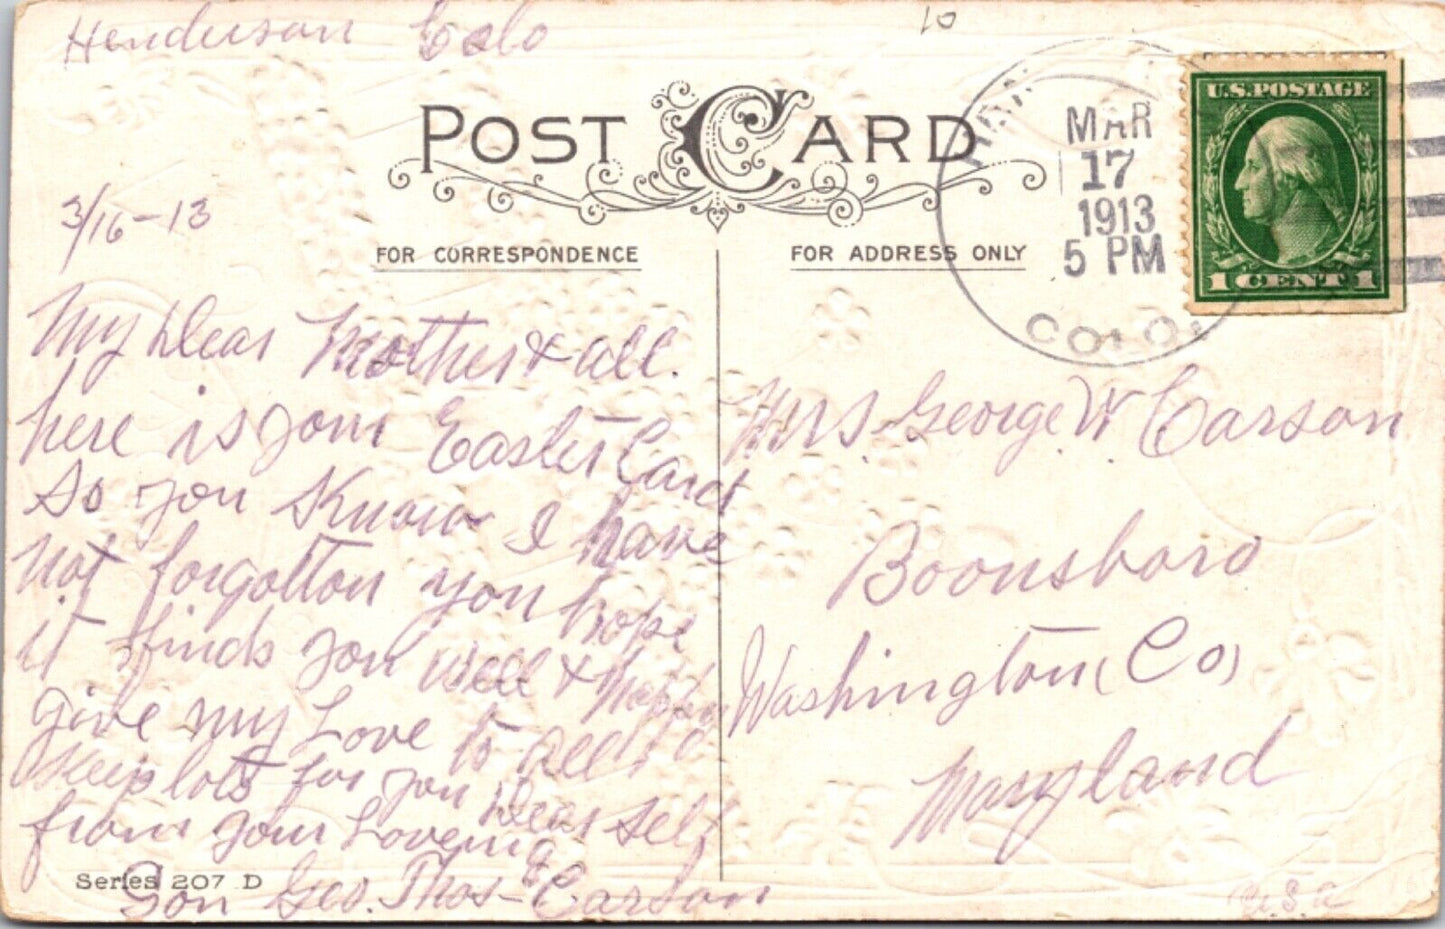 Henderson Colo
10
POST CARD
HEN
MAR
17
1913
5 PM
COLO.
U.S. POSTAGE
1 CENT 1
3/16-13
FOR CORRESPONDENCE
FOR ADDRESS ONLY
My Dear Mother & all.
here is your Easter Card
So you Know I have
not forgotton you hope
it finds you well & Happy
give my Love to all &
keep lots for you Dear Self
from your Loveing
Son Geo. Thos- Carson
Series 207 D
Mrs. George. W. Carson
Boonsboro
Washington (Co)
Maryland
U.S.a